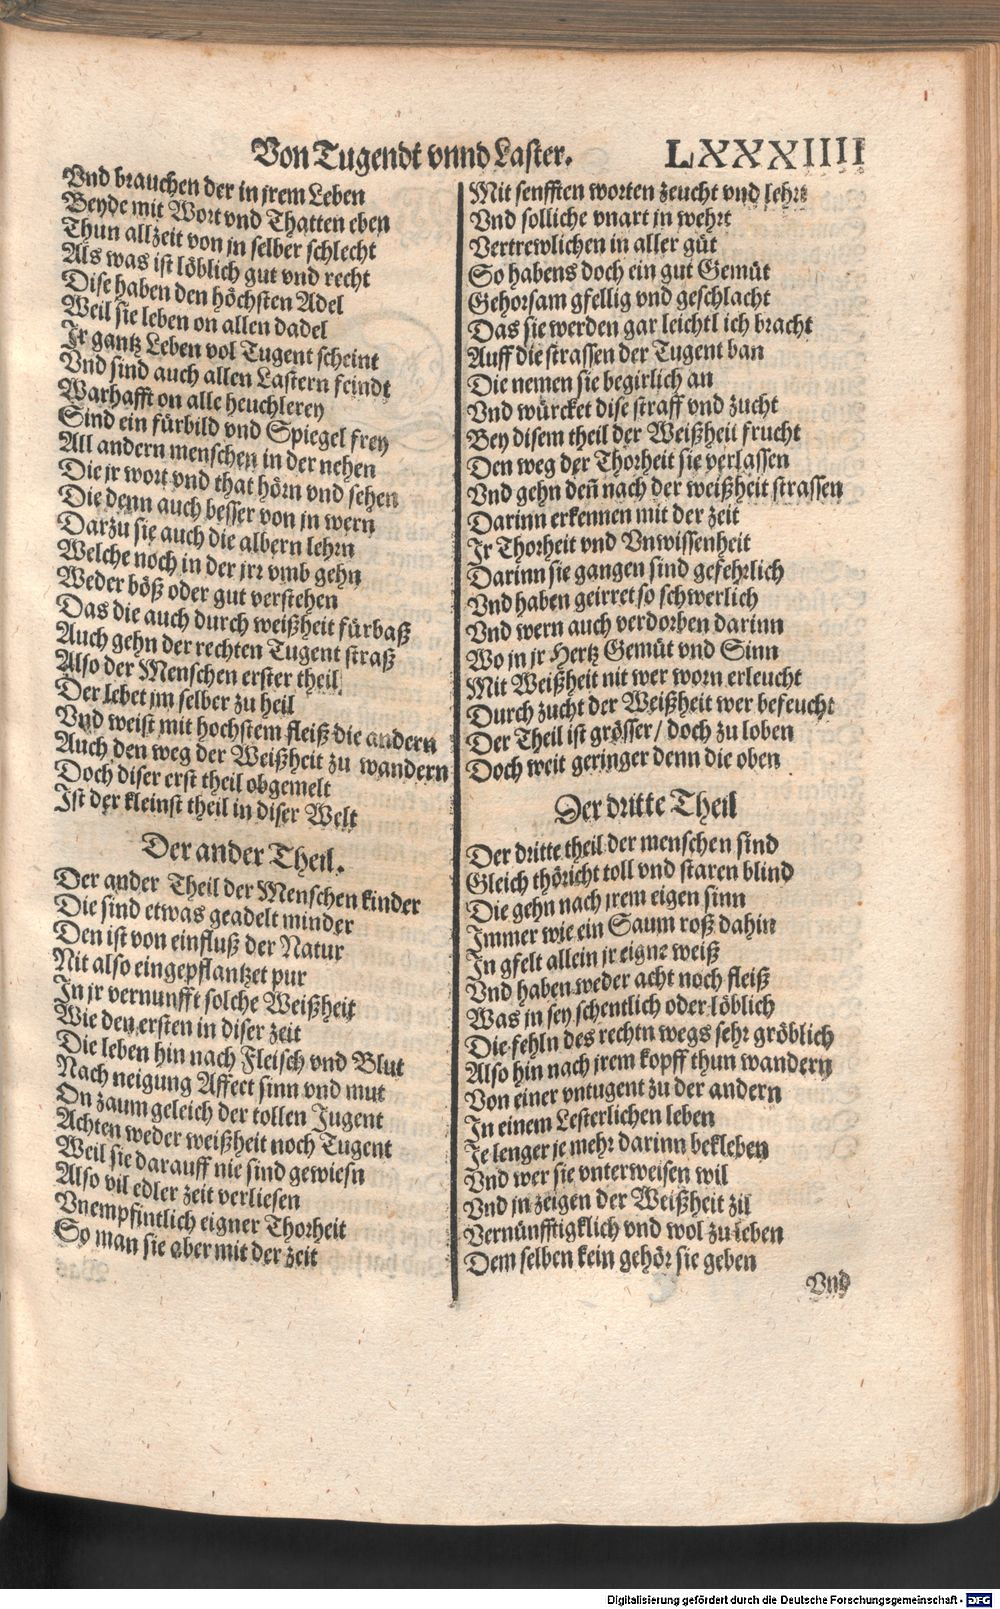 Von Tugendt vnnd Laster. LXXXIIII
Vnd brauchen der in jrem Leben
Beyde mit Wort vnd Thatten eben
Thun allzeit von jn selber schlecht
Als was ist löblich gut vnd recht
Dise haben den höchsten Adel
Weil sie leben on allen dadel
Jr gantz Leben vol Tugent scheint
Vnd sind auch allen Lastern feindt
Warhafft on alle heuchlerey
Sind ein fürbild vnd Spiegel frey
All andern menschen in der nehen
Die jr wort vnd that hörn vnd sehen
Die denn auch besser von jn wern
Darzu sie auch die albern lehrn
Welche noch in der jrr vmb gehn
Weder böß oder gut verstehen
Das die auch durch weißheit fürbaß
Auch gehn der rechten Tugent straß
Also der Menschen erster theil
Der lebet jm selber zu heil
Vnd weist mit hochstem fleiß die andern
Auch den weg der Weißheit zu wandern
Doch diser erst theil obgemelt
Ist der kleinst theil in diser Welt
Der ander Theil.
Der ander Theil der Menschen kinder
Die sind etwas geadelt minder
Den ist von einfluß der Natur
Nit also eingepflantzet pur
In jr vernunfft solche Weißheit
Wie den ersten in diser zeit
Die leben hin nach Fleisch vnd Blut
Nach neigung Affect sinn vnd mut
On zaum geleich der tollen Jugent
Achten weder weißheit noch Tugent
Weil sie darauff nie sind gewiesn
Also vil edler zeit verliesen
Vnempfintlich eigner Thorheit
So man sie aber mit der zeit
Mit senfften worten zeucht vnd lehrt
Vnd solliche vnart jn wehrt
Vertrewlichen in aller güt
So habens doch ein gut Gemüt
Gehorsam gfellig vnd geschlacht
Das sie werden gar leichtl ich bracht
Auff die strassen der Tugent ban
Die nemen sie begirlich an
Vnd würcket dise straff vnd zucht
Bey disem theil der Weißheit frucht
Den weg der Thorheit sie verlassen
Vnd gehn deñ nach der weißheit strassen
Darinn erkennen mit der zeit
Jr Thorheit vnd Vnwissenheit
Darinn sie gangen sind gefehrlich
Vnd haben geirret so schwerlich
Vnd wern auch verdorben darinn
Wo jn jr Hertz Gemüt vnd Sinn
Mit Weißheit nit wer worn erleucht
Durch zucht der Weißheit wer befeucht
Der Theil ist grösser / doch zu loben
Doch weit geringer denn die oben
Der dritte Theil
Der dritte theil der menschen sind
Gleich thöricht toll vnd staren blind
Die gehn nach jrem eigen sinn
Immer wie ein Saum roß dahin
In gfelt allein jr eigne weiß
Vnd haben weder acht noch fleiß
Was jn sey schentlich oder löblich
Die fehln des rechtn wegs sehr gröblich
Also hin nach jrem kopff thun wandern
Von einer vntugent zu der andern
In einem Lesterlichen leben
Je lenger je mehr darinn bekleben
Vnd wer sie vnterweisen wil
Vnd jn zeigen der Weißheit zil
Vernünfftigklich vnd wol zu leben
Dem selben kein gehör sie geben
Vnd
Digitalisierung gefördert durch die Deutsche Forschungsgemeinschaft - DFG